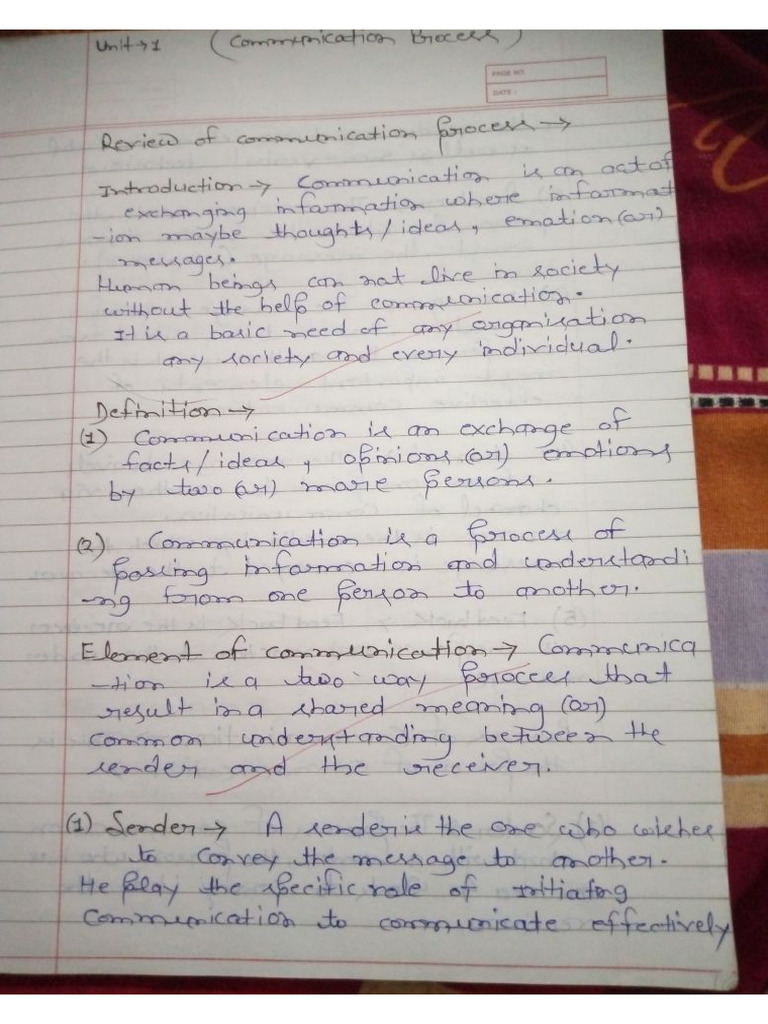 Unit → 1 (Communication Process)
PAGE NO:
DATE:
Review of communication process →
Introduction → Communication is an act of
exchanging information where informat
-ion maybe thoughts/ideas, emotion (or)
messages.
Human beings can not live in society
without the help of communication.
It is a basic need of any organisation
any society and every individual.
Definition →
(1) Communication is an exchange of
facts/ideas, opinions (or) emotions
by two (or) more persons.
(2) Communication is a process of
passing information and understandi
-ng from one person to another.
Element of communication → Communica
-tion is a two way process that
result in a shared meaning (or)
common understanding between the
sender and the receiver.
(1) Sender → A sender is the one who wishes
to convey the message to another.
He play the specific role of Initiating
Communication to communicate effectively